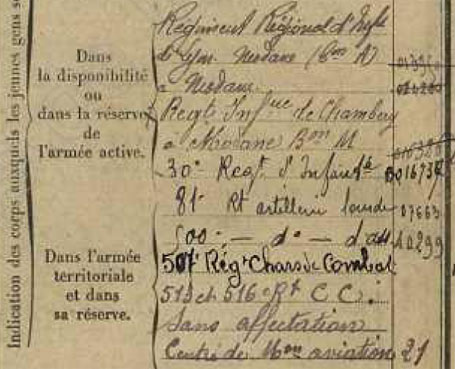 Indication des corps auxquels les jeunes gens s
Dans
la disponibilité
ou
dans la réserve
de
l'armée active.
Régiment Régional d'Infie
de Lyon Modane (6me A)
à Modane
Regt Infrie de Chambery
à Modane Bon M
30e Regt d'Infanterie 016736
81e Rt artillerie lourde 07663
500e — do — d'ass 10299
Dans l'armée
territoriale
et dans
sa réserve.
507e Régt Chars de Combat
511 et 516e Rt C C.
Sans affectation
Centre de Mon aviation 21